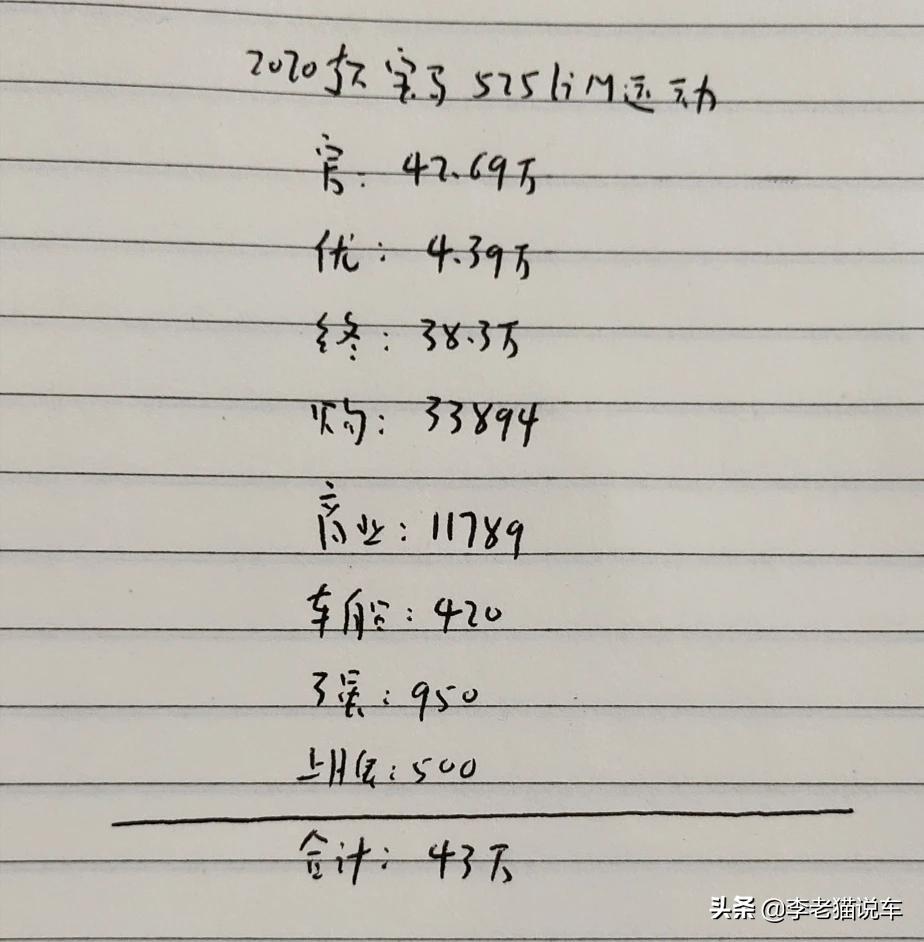 2020款宝马525liM运动
官:42.69万
优:4.39万
终:38.3万
购:33894
商业:11789
车船:420
交强:950
上牌:500
合计:43万
头条 @李老猫说车